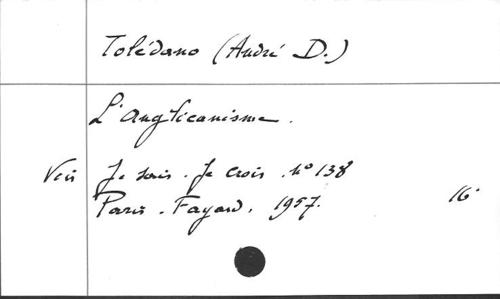 Tolédano (André D.)
L'anglicanisme.
Voir Je sais. Je crois. nº 138
Paris. Fayard. 1957. 16º